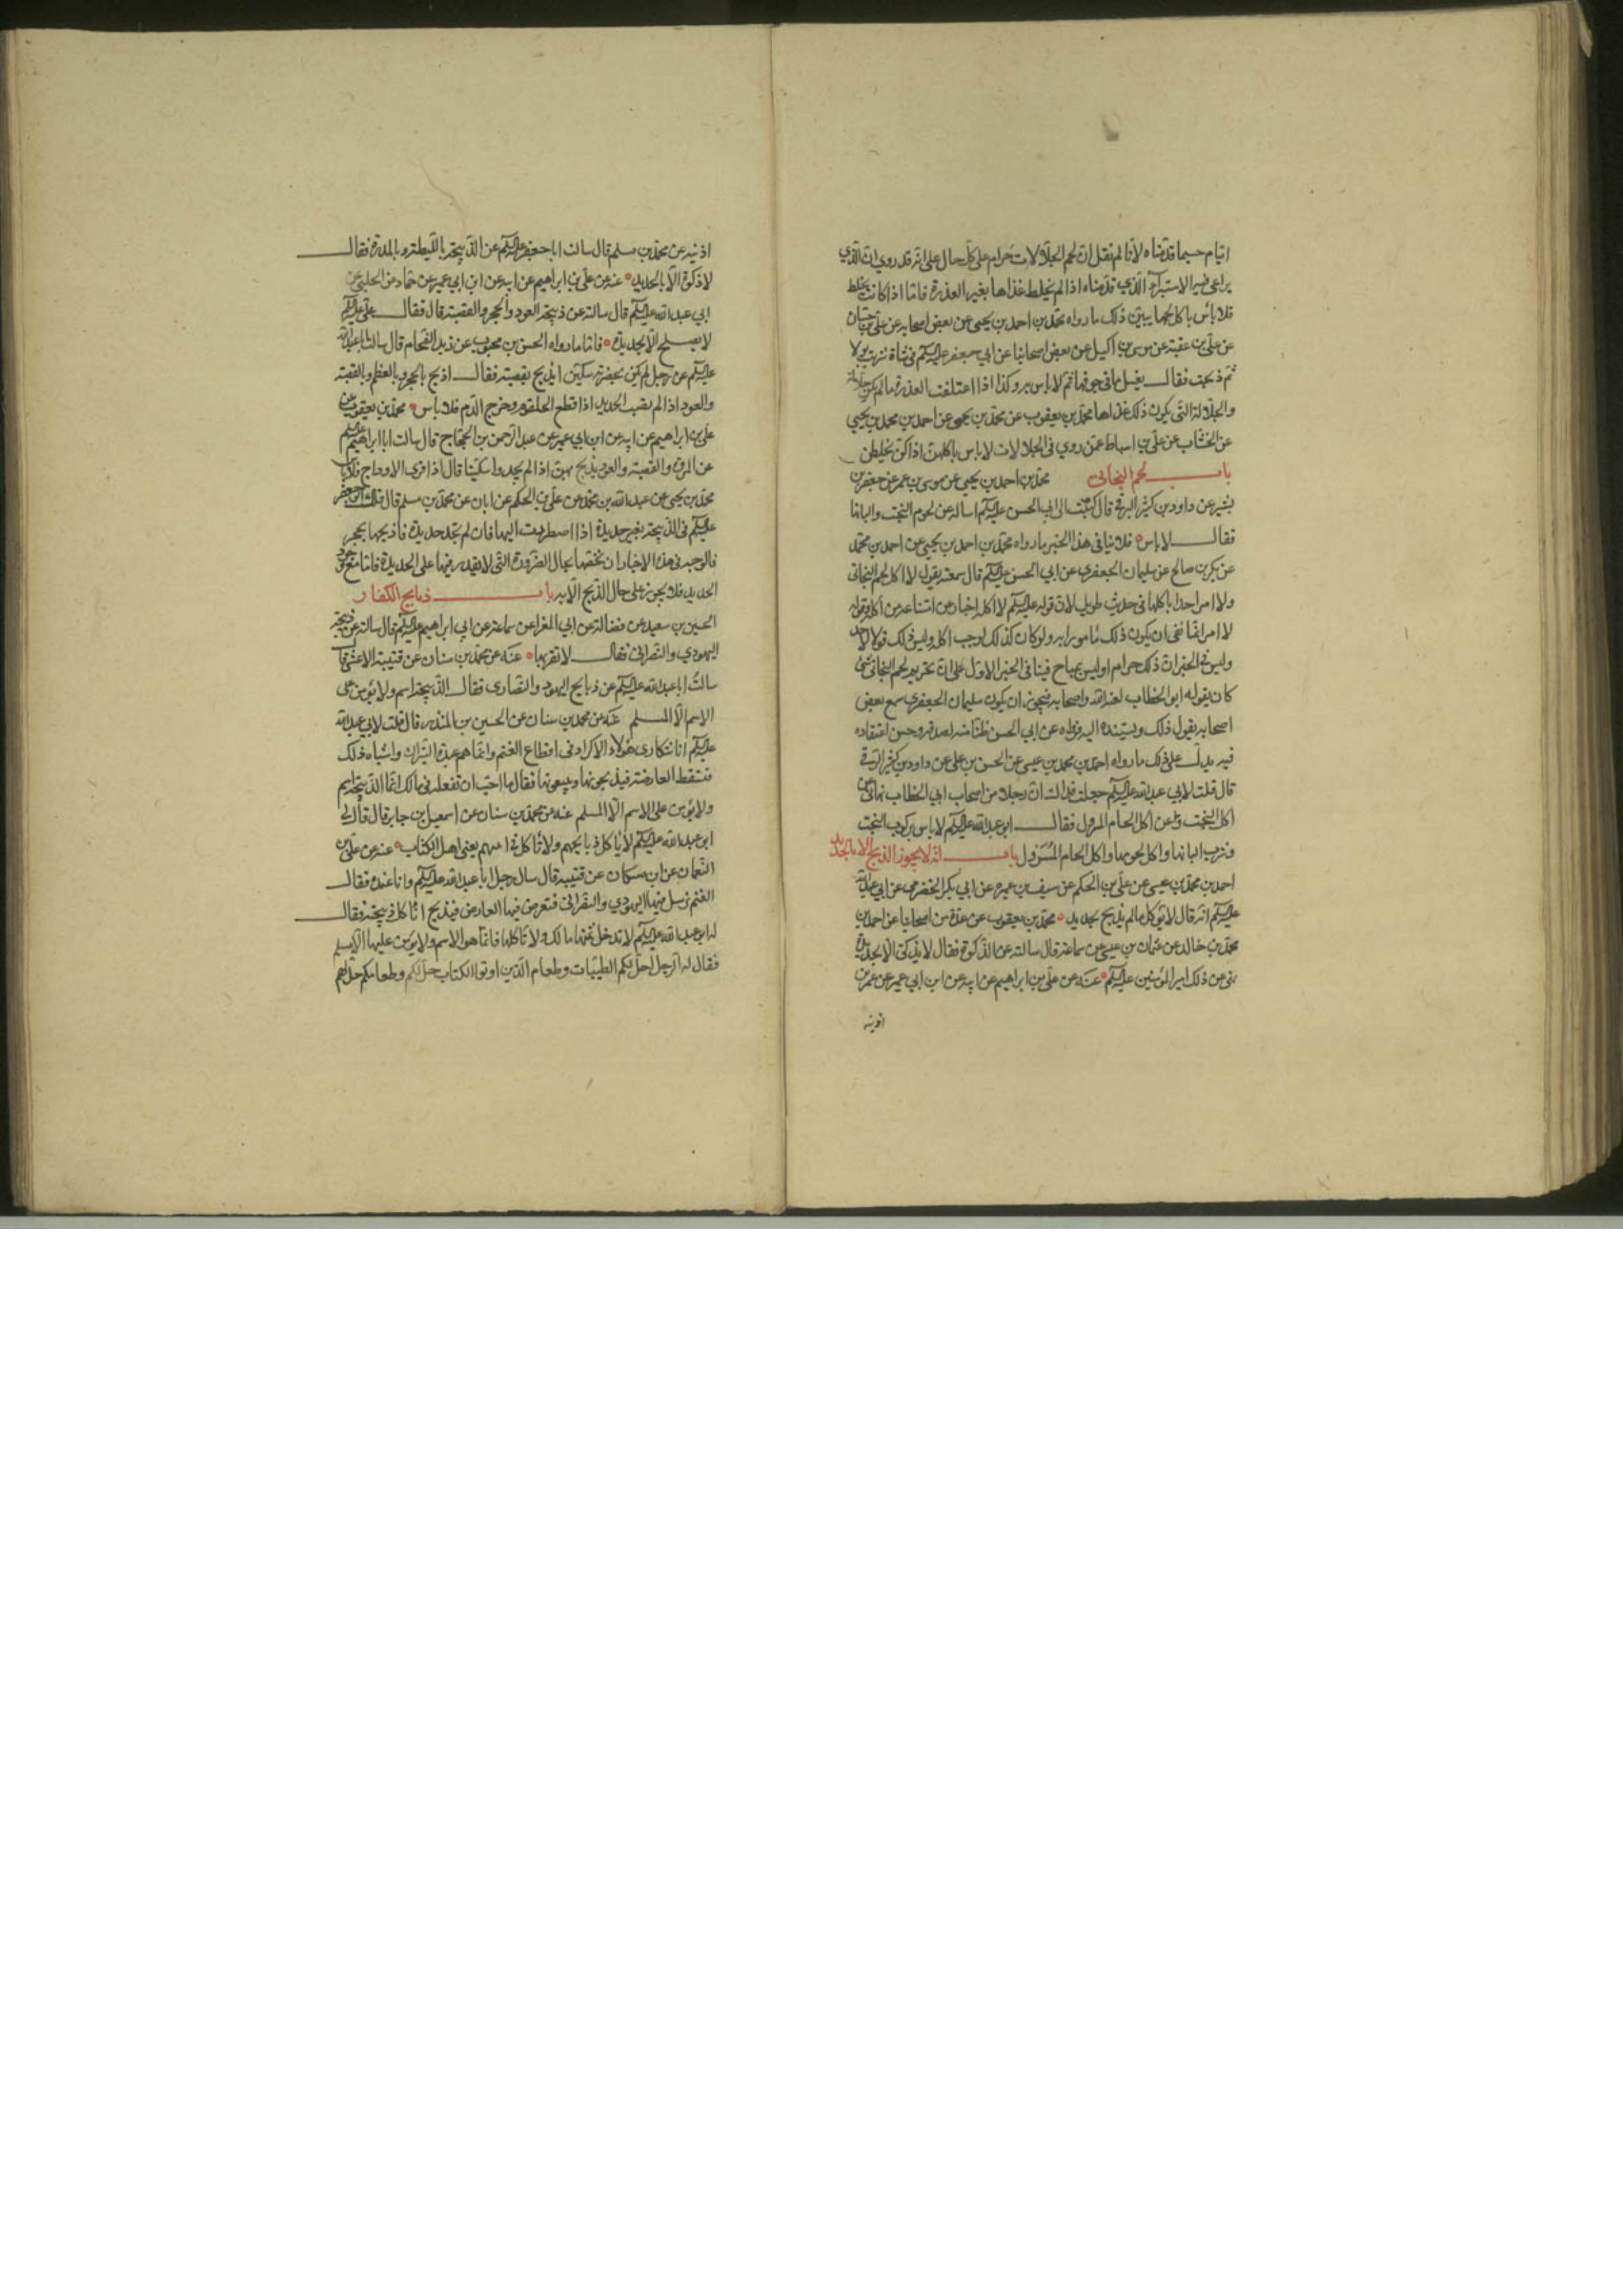 ايام حسبما قدمناه لانا لم نقل ان لحم الجلالات حرام على كل حال على انه قد روي ان الذي
يراعى فيه الاستبراء الذي قدمناه اذا لم يخلط غذاها بغير العذرة فاما اذا كانت يخلط
فلا بأس باكل لحمها يبين ذلك ما رواه محمد بن احمد بن يحيى عن بعض اصحابه عن علي بن حسان
عن علي بن عقبة عن موسى بن اكيل عن بعض اصحابنا عن ابي جعفر عليه السلم في شاة شربت بولا
ثم ذبحت فقال يغسل ما في جوفها ثم لا باس به وكذا اذا اعتلفت العذرة ما لم يكن جلالة
والجلالة التي يكون ذلك غذاها محمد بن يعقوب عن محمد بن يحيى عن احمد بن محمد بن يحيى
عن الخشاب عن علي بن اسباط عمن روى في الجلالات لا باس باكلهن اذا كن يخلطن
باب لحم البخاتي محمد بن احمد بن يحيى عن موسى بن عمر عن جعفر بن
بشير عن داود بن كثير الرقي قال كتبت الى ابي الحسن عليه السلم اساله عن لحوم البخت والبانها
فقال لا باس فلا ينافي هذا الخبر ما رواه محمد بن احمد بن يحيى عن احمد بن محمد
عن بكر بن صالح عن سليمان الجعفري عن ابي الحسن عليه السلم قال سمعته يقول لا اكل لحم البخاتي
ولا امر احدا باكلها في حديث طويل لان قوله عليه السلم لا اكله اخبار عن امتناعه من اكله وقوله
لا امر انما نفى ان يكون ذلك مأمورا به ولو كان كذلك لوجب اكله وليس ذلك قولا لاحد
وليس في الخبر ان ذلك حرام او ليس بمباح فينافى الخبر الاول على ان تحريم لحم البخاتي شئ
كان يقوله ابو الخطاب لعنه الله واصحابه فيجوز ان يكون سليمان الجعفري سمع بعض
اصحابه يقول ذلك ويسنده اليه فرواه عن ابي الحسن ظنا منه لصدقه وحسن اعتقاده
فيه يدل على ذلك ما رواه احمد بن محمد بن عيسى عن الحسن بن علي عن داود بن كثير الرقي
قال قلت لابي عبد الله عليه السلم جعلت فداك ان رجلا من اصحاب ابي الخطاب نهاني عن
اكل البخت وعن اكل الحمام المسرول فقال ابو عبد الله عليه السلم لا باس بركوب البخت
وشرب البانها واكل لحومها واكل الحمام المسرول باب انه لا يجوز الذبح الا بالحديد
احمد بن محمد بن عيسى عن علي بن الحكم عن سيف بن عميره عن ابي بكر الحضرمي عن ابي عبد الله
عليه السلم انه قال لا يؤكل ما لم يذبح بحديد محمد بن يعقوب عن عدة من اصحابنا عن احمد بن
محمد بن خالد عن عثمان بن عيسى عن سماعة قال سالته عن الذكوة فقال لا يذكى الا بحديدة
نهى عن ذلك امير المؤمنين عليه السلم عنه عن علي بن ابراهيم عن ابيه عن ابن ابي عمير عن عمر بن
اذينه
اذينه عن محمد بن مسلم قال سالت ابا جعفر عليه السلم عن الذبيحة بالليطة وبالمدرة فقال
لا ذكوة الا بالحديد عنه عن علي بن ابراهيم عن ابيه عن ابن ابي عمير عن حماد عن الحلبي عن
ابي عبد الله عليه السلم قال سالته عن ذبيحة العود والحجر والقصبة قال فقال علي عليه السلم
لا يصلح الا بحديدة فاما ما رواه الحسن بن محبوب عن زيد الشحام قال سالت ابا عبد الله
عليه السلم عن رجل لم يكن بحضرته سكين ايذبح بقصبة فقال اذبح بالحجر وبالعظم وبالقصبة
والعود اذا لم تصب الحديد اذا قطع الحلقوم وخرج الدم فلا باس محمد بن يعقوب عن
علي بن ابراهيم عن ابيه عن ابن ابي عمير عن عبد الرحمن بن الحجاج قال سالت ابا ابراهيم عليه السلم
عن المروة والقصبة والعود يذبح بهن اذا لم يجدوا سكينا قال اذا فرى الاوداج فلا باس
محمد بن يحيى عن عبد الله بن محمد عن علي بن الحكم عن ابان عن محمد بن مسلم قال قال ابو جعفر
عليه السلم في الذبيحة بغير حديدة اذا اضطررت اليها فان لم تجد حديدة فاذبحها بحجر
فالوجه في هذه الاخبار ان نخصها بحال الضرورة التي لا يقدر فيها على الحديدة فاما مع وجود
الحديد فلا يجوز على حال الذبح الا به باب ذبايح الكفار
الحسين بن سعيد عن فضالة عن ابي المغرا عن سماعة عن ابي ابراهيم عليه السلم قال سالته عن ذبيحة
اليهودي والنصراني فقال لا تقربها عنه عن محمد بن سنان عن قتيبة الاعشى قال
سالت ابا عبد الله عليه السلم عن ذبايح اليهود والنصارى فقال الذبيحة اسم ولا يؤمن على
الاسم الا المسلم عنه عن محمد بن سنان عن الحسين بن المنذر قال قلت لابي عبد الله
عليه السلم انا نتكارى هؤلاء الاكراد في اقطاع الغنم وانما هم عبدة النيران واشباه ذلك
فتسقط العارضة فيذبحونها ويبيعونها فقال ما احب ان تفعله في مالك انما الذبيحة اسم
ولا يؤمن على الاسم الا المسلم عنه عن محمد بن سنان عن اسمعيل بن جابر قال قال لي
ابو عبد الله عليه السلم لا تاكل ذبايحهم ولا تاكل في انيتهم يعني اهل الكتاب عنه عن علي بن
النعمان عن ابن مسكان عن قتيبة قال سال رجل ابا عبد الله عليه السلم وانا عنده فقال
الغنم نرسل فيها اليهودي والنصراني فتعرض فيها العارض فيذبح اناكل ذبيحته فقال
له ابو عبد الله عليه السلم لا تدخل ثمنها مالك ولا تاكلها فانما هو الاسم ولا يؤمن عليها الا مسلم
فقال له الرجل احل لكم الطيبات وطعام الذين اوتوا الكتاب حل لكم وطعامكم حل لهم